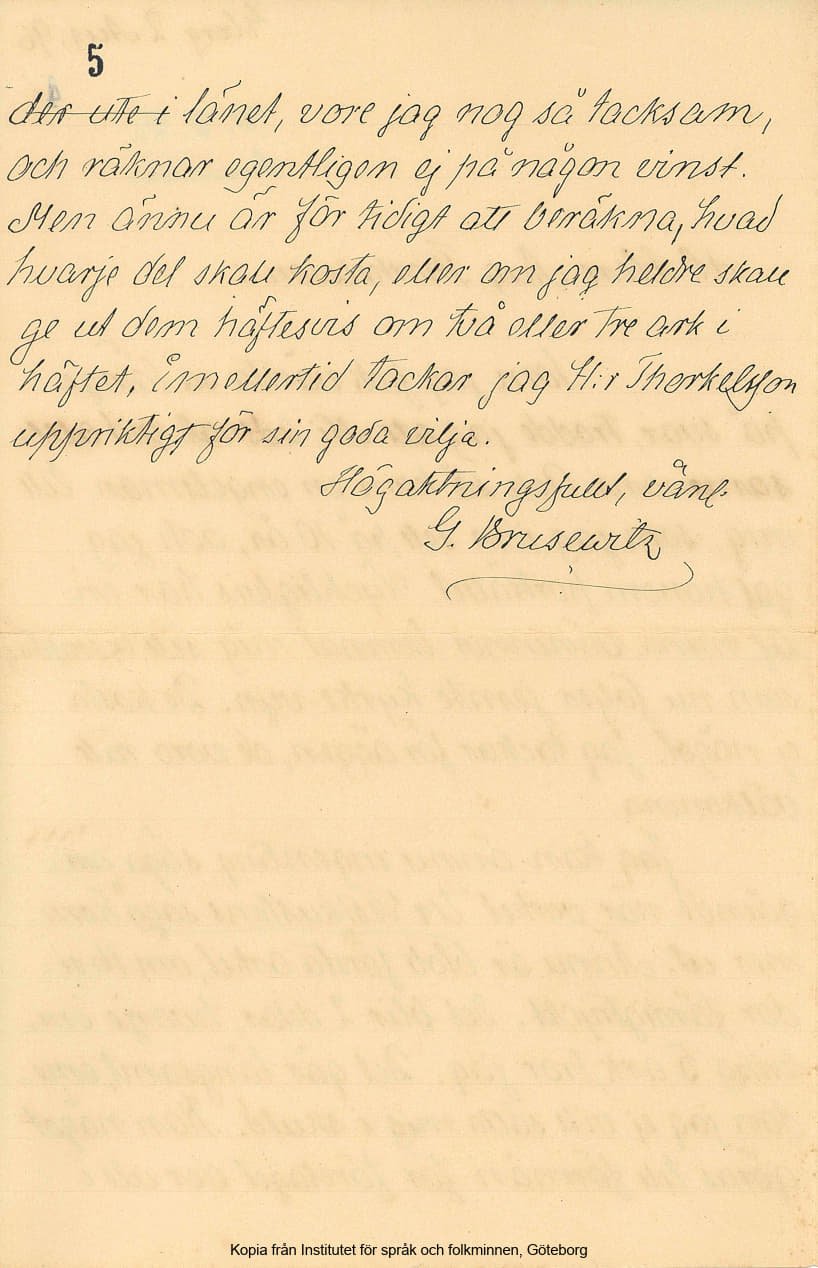 5
der ute i länet, vore jag nog så tacksam,
och räknar egentligen ej på någon vinst.
Men ännu är för tidigt att beräkna, hvad
hvarje del skall kosta, eller om jag heldre skall
ge ut dem häftesvis om två eller tre ark i
häftet. Imellertid tackar jag H:r Thorkelsson
uppriktigt för sin goda vilja.
Högaktningsfullt, vänl.
G. Brusewitz
Kopia från Institutet för språk och folkminnen, Göteborg